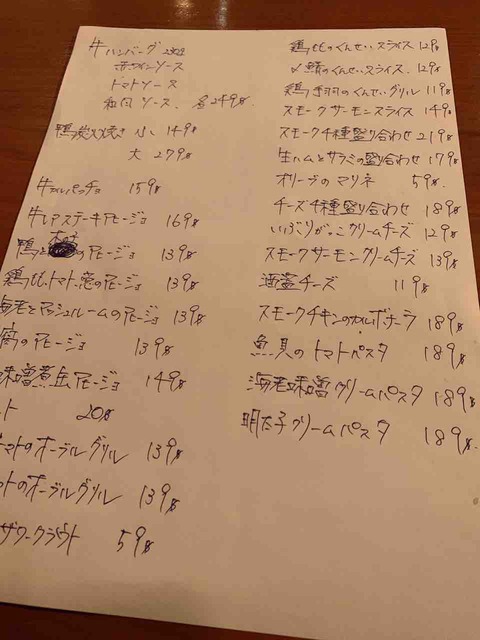 牛ハンバーグ
赤ワインソース
トマトソース
和風ソース、各2490
鴨炭火焼き 小 1490
大 2790
牛カルパッチョ 1590
牛レアステーキアヒージョ 1690
鴨と のアヒージョ 1390
鶏ヒヒ、トマト、葱のアヒージョ 1390
海老とマッシュルームのアヒージョ 1390
のアヒージョ 1390
味噌煮缶アヒージョ 1490
ット 200
トマトのオーブルグリル 1390
ットのオーブルグリル 1390
ザワークラウト 590
鶏ヒヒのくんせいスライス 1290
〆鯖のくんせいスライス 1290
鶏手羽のくんせいグリル 1190
スモークサーモンスライス 1490
スモーク4種盛り合わせ 2190
生ハムとサラミの盛り合わせ 1790
オリーブのマリネ 590
チーズ4種盛り合わせ 1890
いぶりがっこクリームチーズ 1290
スモークサーモンクリームチーズ 1390
酒盗チーズ 1190
スモークチキンのカルボナーラ 1890
魚貝のトマトパスタ 1890
海老味噌クリームパスタ 1890
明太子クリームパスタ 1890